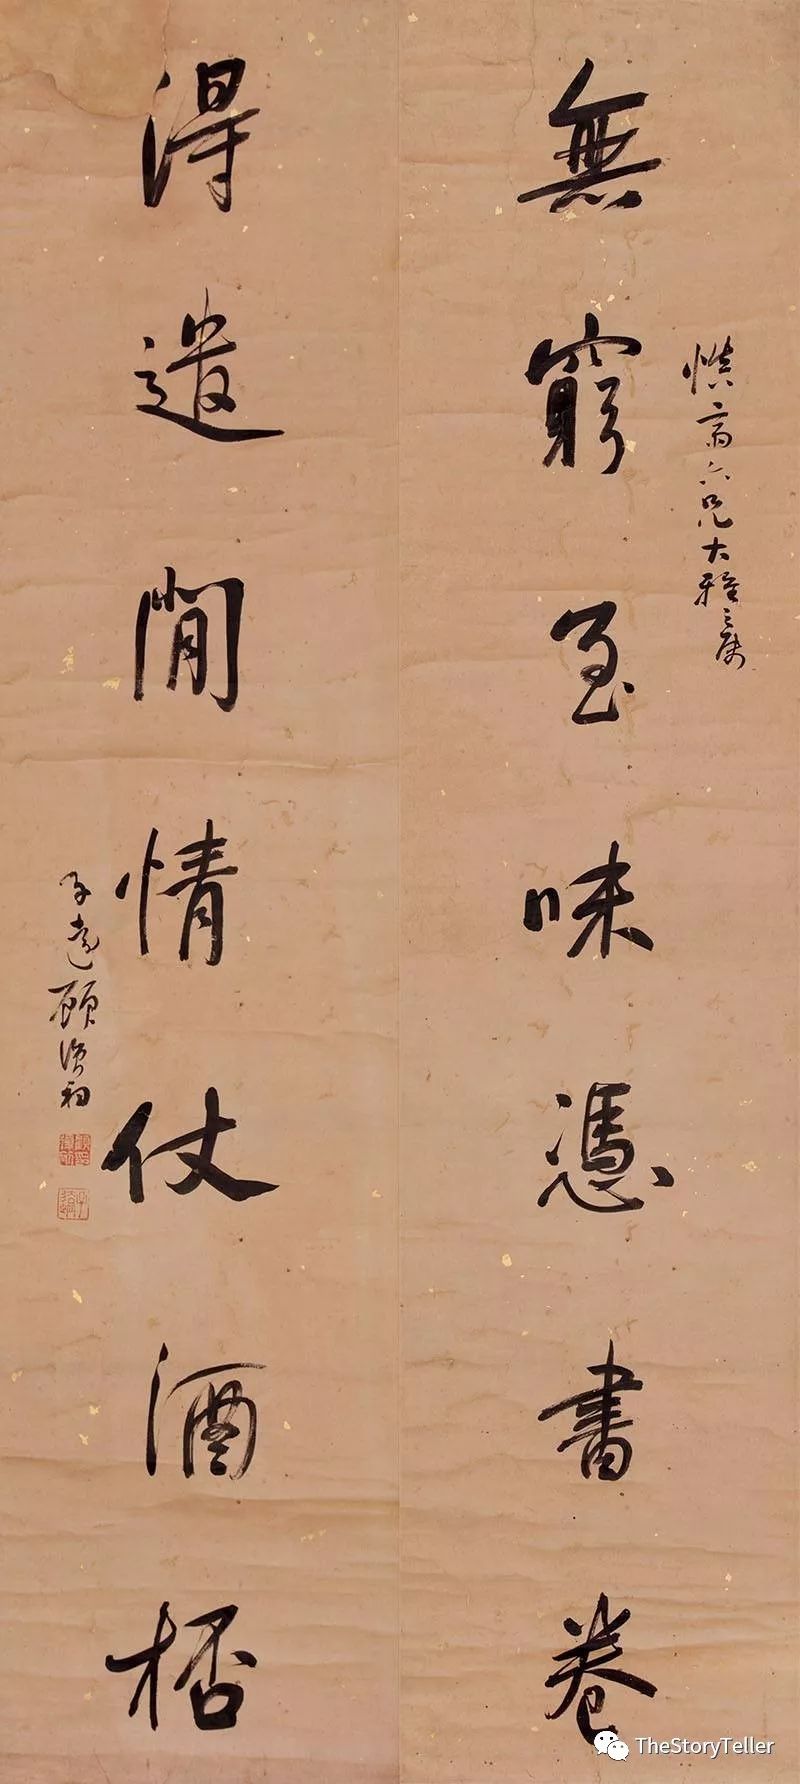 慎齋六兄大雅之属
無窮至味憑書卷
得遣閒情仗酒桮
子遠顧復初
TheStoryTeller